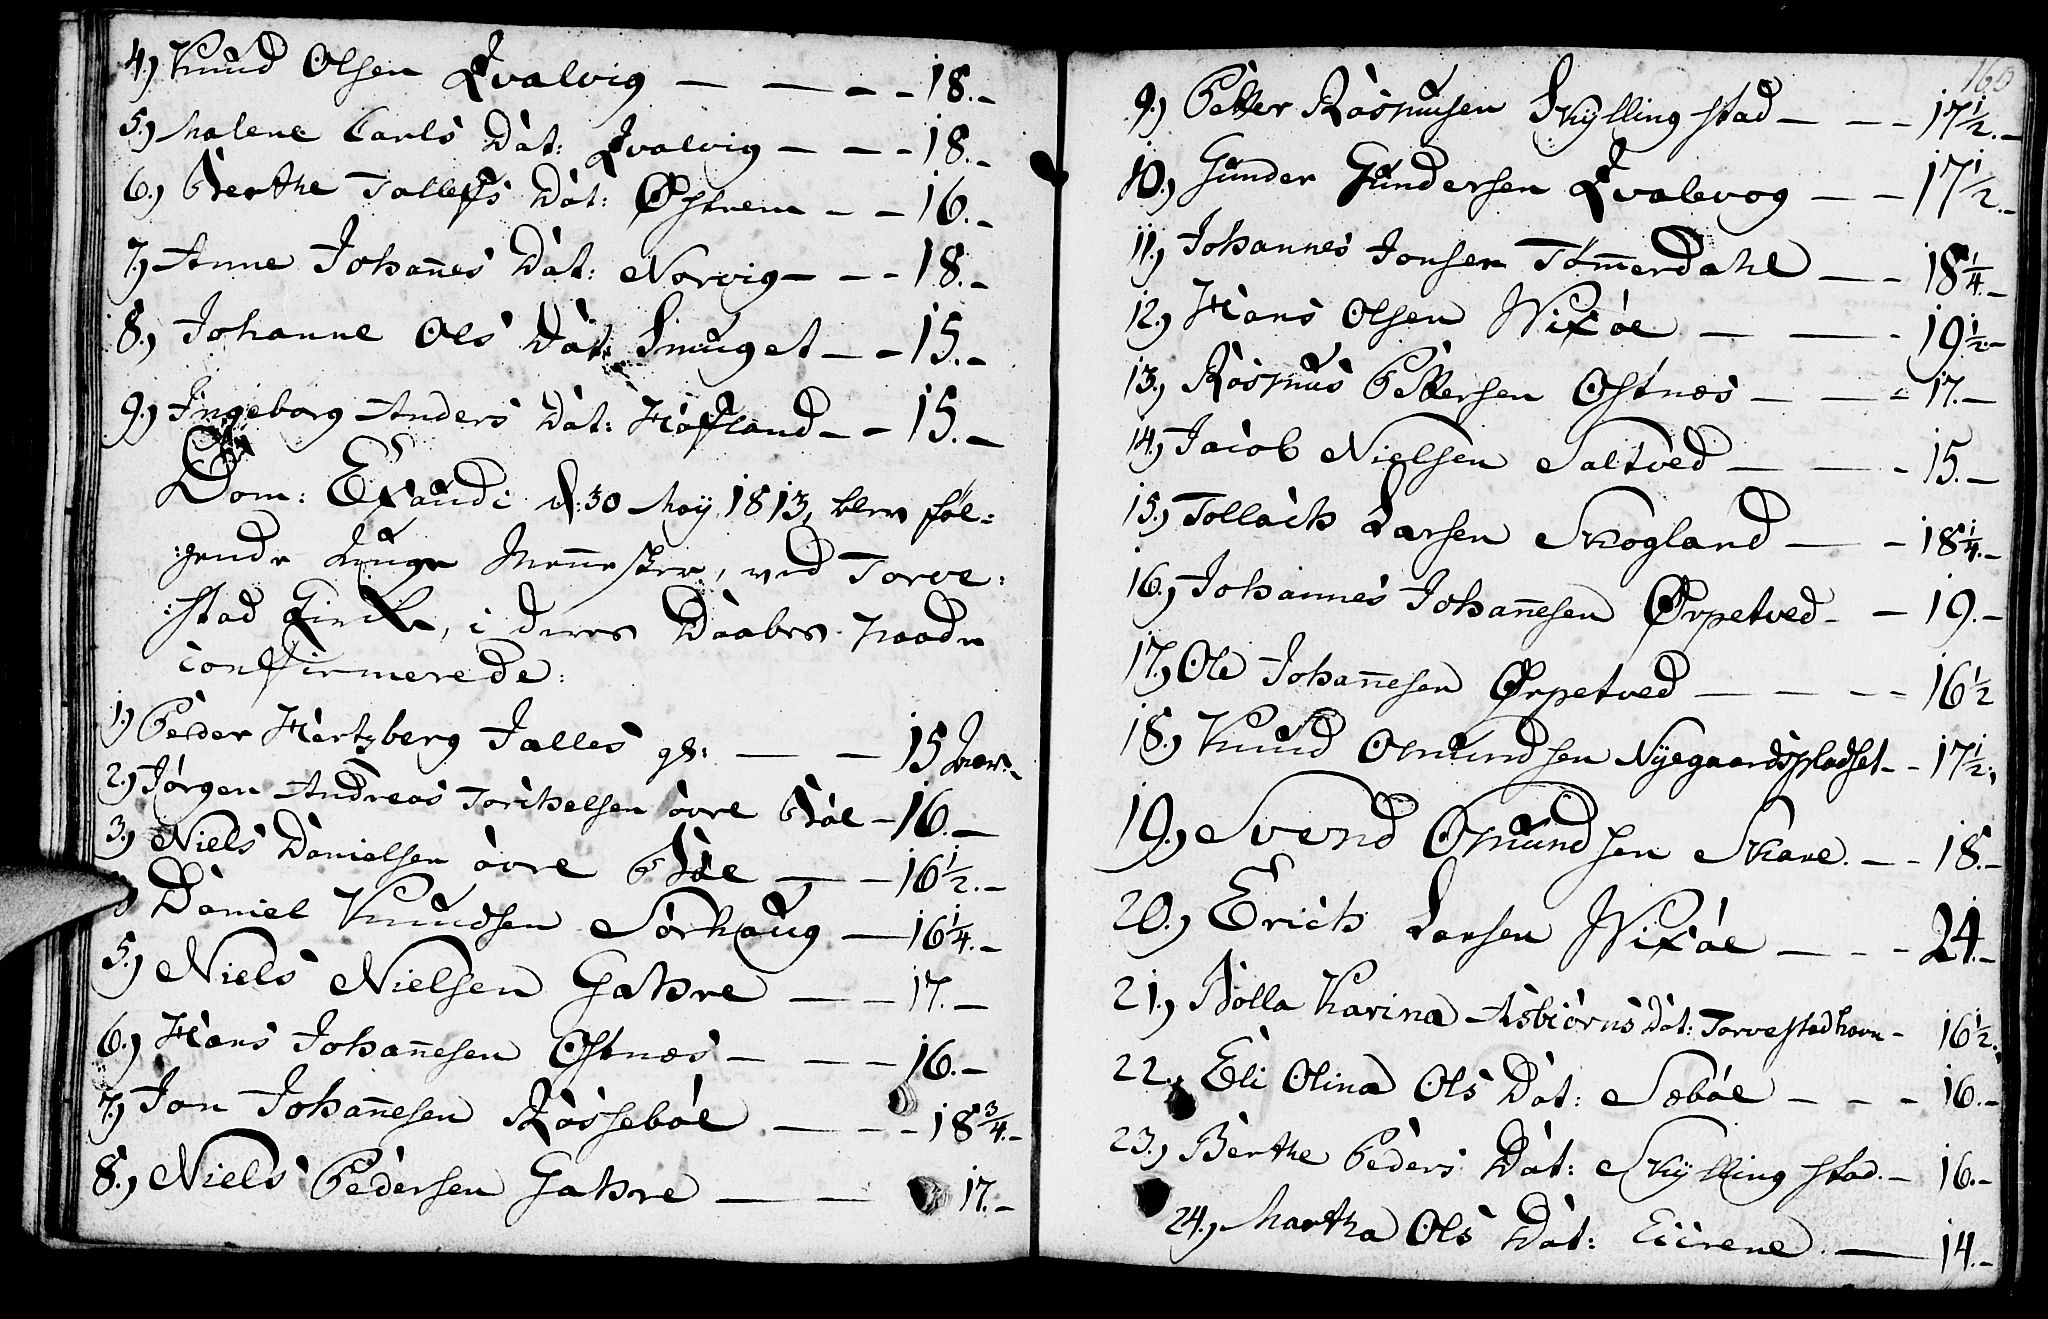 4.) Knud Olsen Qvalvig — — — - 18.-
5.) Malene Carls Dat: Qvalvig — — - 18.-
6.) Berthe Tollefs Dat: Østrem - - 16.-
7.) Anne Johan̄es Dat: Norvig — - - 18.-
8.) Johanne Ols Dat: Smuget - - 15.-
9.) Ingeborg Anders Dat: Hafland - - 15.-
Dom: Exaudi d: 30 May 1813, blev føl=
:gende Unge Men̄esker, ved Torve:
:stad Kirke, i deres Daabes Naade
confirmerede:
1.) Peder Hertzberg Jalles gs: — — 15 Aar.-
2.) Jørgen Andreas Torchelsen øvre Bøe - 16.-
3.) Niels Danielsen øvre Bøe — - 16½.-
Daniel Knudsen Sørhaug — 16¼.-
5.) Niels Nielsen Gahre — - 17.-
6.) Hans Johan̄esen Ostnes - — - 16.-
7.) Jon Johan̄esen Røssebøe — — - 18¾.-
8.) Niels Pedersen Gahre — — 17.-
160
9.) Petter Rasmusen Skyllingstad — — - 17½.-
10.) Gunder Gundersen Qvalevog — - 17½.-
11.) Johannes Jonsen Tøm̄erdahl — - 18¼.-
12.) Hans Olsen Vixøe — — - 19½.-
13.) Rasmus Pettersen Ostnes — — - 17.-
14.) Jacob Nielsen Saltved — — - 15.-
15.) Tollach Larsen Skogland — - 18¼.-
16.) Johannes Johan̄esen Ørpetved - - 19.-
17.) Ole Johan̄esen Ørpetved — — - - 16½
18.) Knud Omundsen Nyegaardspladset - - 17½.
19.) Svend Omundsen Skare. - - 18.-
20.) Erich Larsen Vixøe — - - 24.-
21.) Bolla Karina Asbiørns Dat: Torvestadhavn - 16½.
22.) Eli Olina Ols Dat: Sæbøe - - - 16.-
23.) Berthe Peders Dat: Skyllingstad. - 16.-
24.) Martha Ols Dat: Eiirene. — 14.-